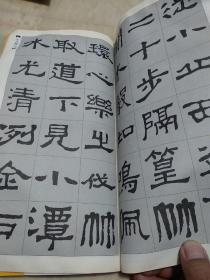 從小丘西
二十步隔篁竹
如鳴佩
環心樂之伐竹
取道下見小潭
水尤清冽全石